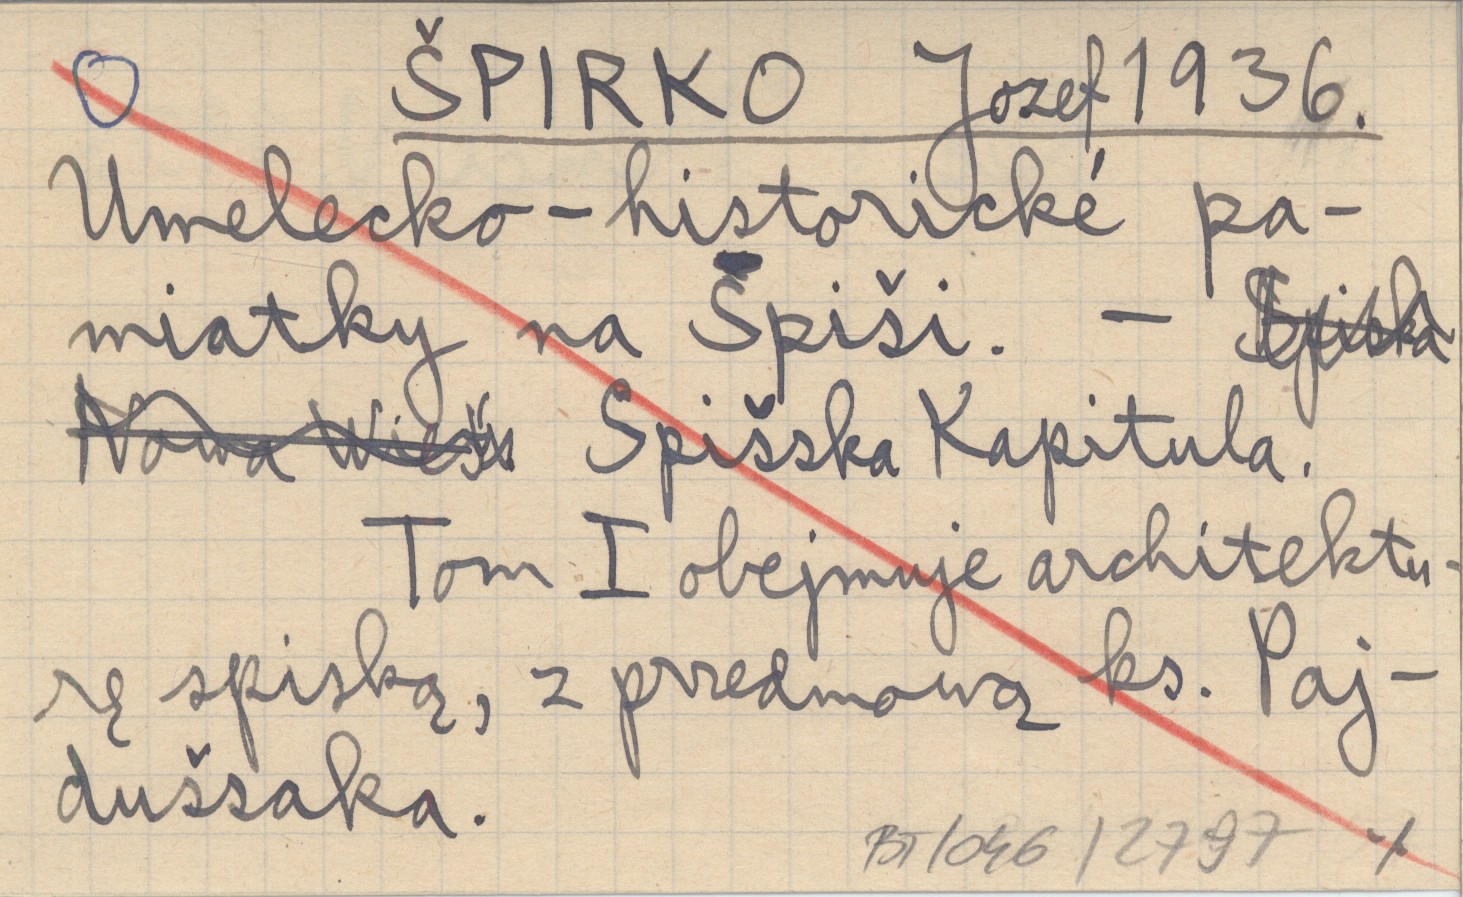 ŠPIRKO Jozef 1936.
Umelecko-historické pa-
miatky na Spiši. - Spiska
Nowa Wieś Spišska Kapitula.
Tom I obejmuje architektu-
rę spiską, z przedmową ks. Paj-
duššaka.
BT/046/2797